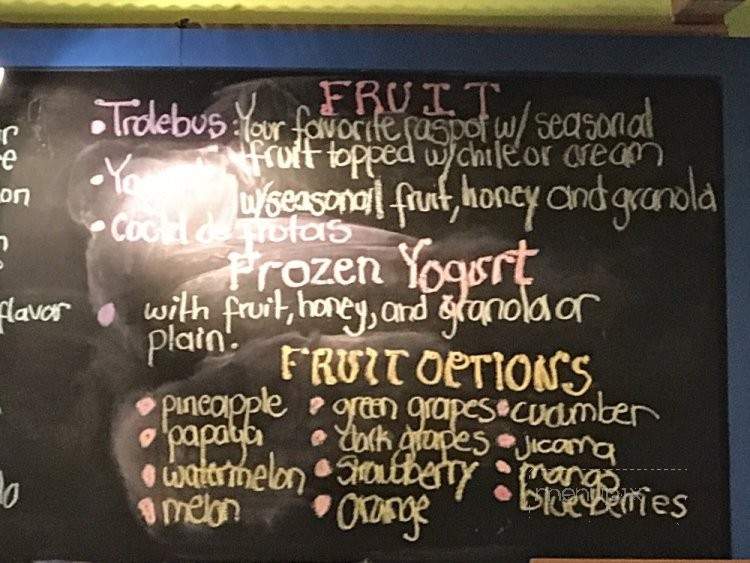 FRUIT
• Trolebus: Your favorite raspot w/ seasonal
fruit topped w/chile or cream
w/seasonal fruit, honey and granola
• Coctel de frotas
Frozen Yogurt
flavor
• with fruit, honey, and granola or
plain.
FRUIT OPTIONS
• pineapple • green grapes • cucumber
• papaya • dark grapes • jicama
• watermelon • strawberry • mango
• melon • orange • blueberries
menupix